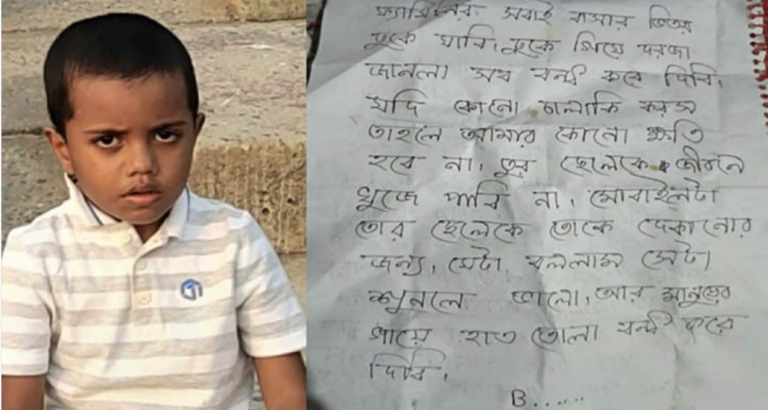 ফ্যামিলির সবাই বাসার ভিতর
ঢুকে যাবি, ঢুকে গিয়ে দরজা
জানলা সব বন্ধ করে দিবি,
যদি কোনো চালাকি করস
তাহলে আমার কোনো ক্ষতি
হবে না, তুর ছেলেকে জীবনে
খুজে পাবি না, মোবাইলটা
তোর ছেলেকে তোকে দেকানোর
জন্য, যেটা বললাম সেটা
শুনলে ভালো, আর মানুষের
গায়ে হাত তোলা বন্ধ করে
দিবি,
B......